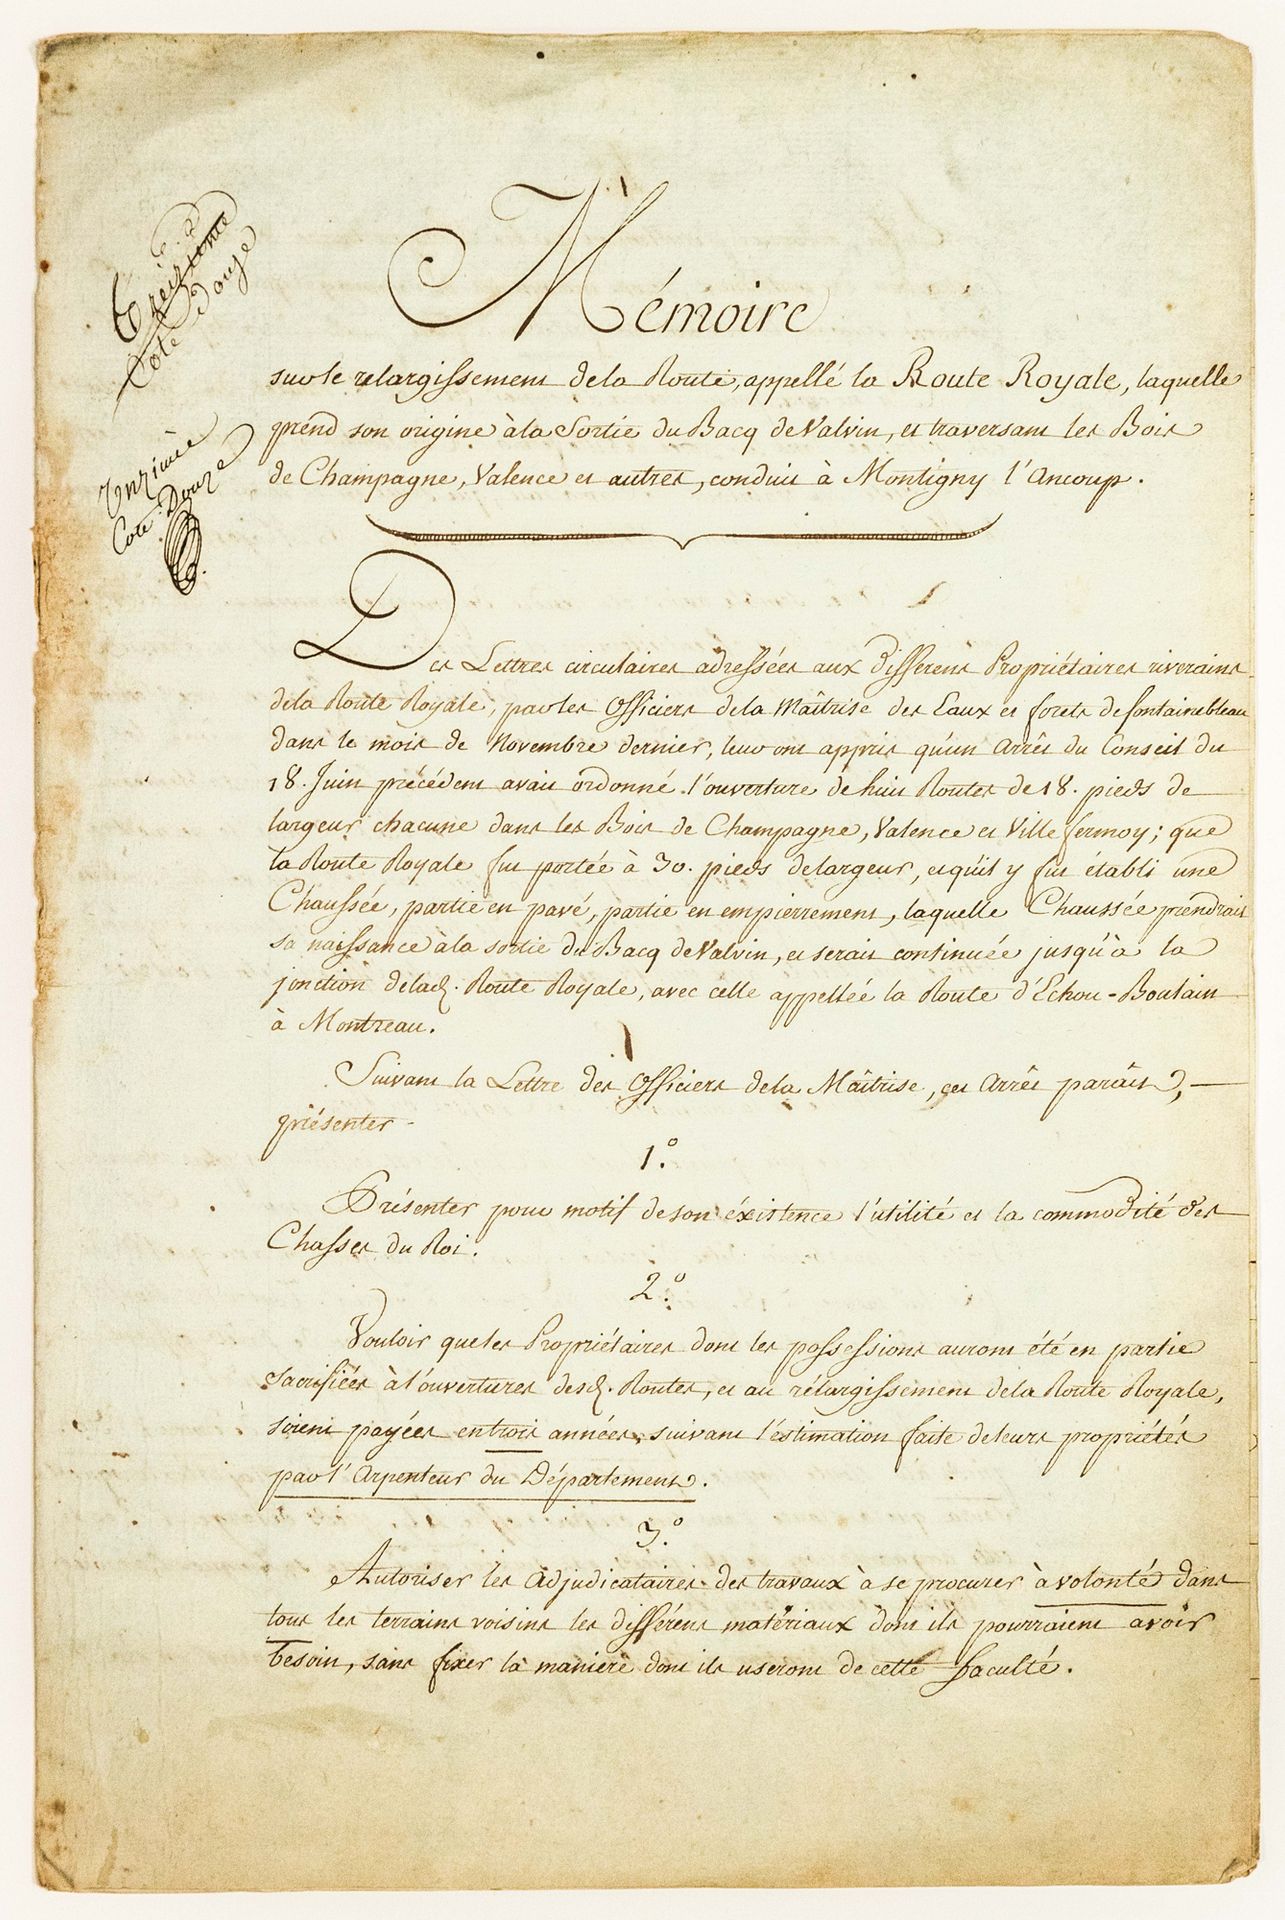 Treizieme
Cote douze
Onzieme
Cote Douze
Mémoire
sur le relargissement de la Route, appellé la Route Royale, laquelle
prend son origine à la Sortie du Bacq de Valvin, et traversant les Bois
de Champagne, Valence et autres, conduit à Montigny l'Ancoup.
Des Lettres circulaires adressées aux différens Propriétaires riverains
de la Route Royale, par les Officiers de la Maîtrise des Eaux et forets de fontainebleau
dans le mois de Novembre dernier, leur ont appris qu'un Arrêt du Conseil du
18. Juin précédent avait ordonné l'ouverture de huit Routes de 18. pieds de
largeur chacune dans les Bois de Champagne, Valence et Ville fermoy; que
la Route Royale fut portée à 30. pieds de largeur, et qu'il y fut établi une
Chaussée, partie en pavé, partie en empierrement, laquelle Chaussée prendrait
sa naissance à la sortie du Bacq de Valvin, et serait continuée jusqu'à la
jonction de lad. Route Royale, avec celle appellée la Route d'Echou-Boulain
à Montreau.
Suivant la Lettre des Officiers de la Maîtrise, cet Arrêt parait,
présenter
1.°
Présenter pour motif de son éxistence l'utilité et la commodité des
Chasses du Roi.
2.°
Vouloir que les Propriétaires dont les possessions auront été en partie
Sacrifiées à l'ouvertures desd. Routes, et au rélargissement de la Route Royale,
soient payées en trois années, suivant l'éstimation faite de leurs propriétés
par l'Arpenteur du Département.
3.°
Autoriser les Adjudicataires des travaux à se procurer à volonté dans
tous les terrains voisins les différens matériaux dont ils pourraient avoir
besoin, sans fixer la maniere dont ils useront de cette faculté.